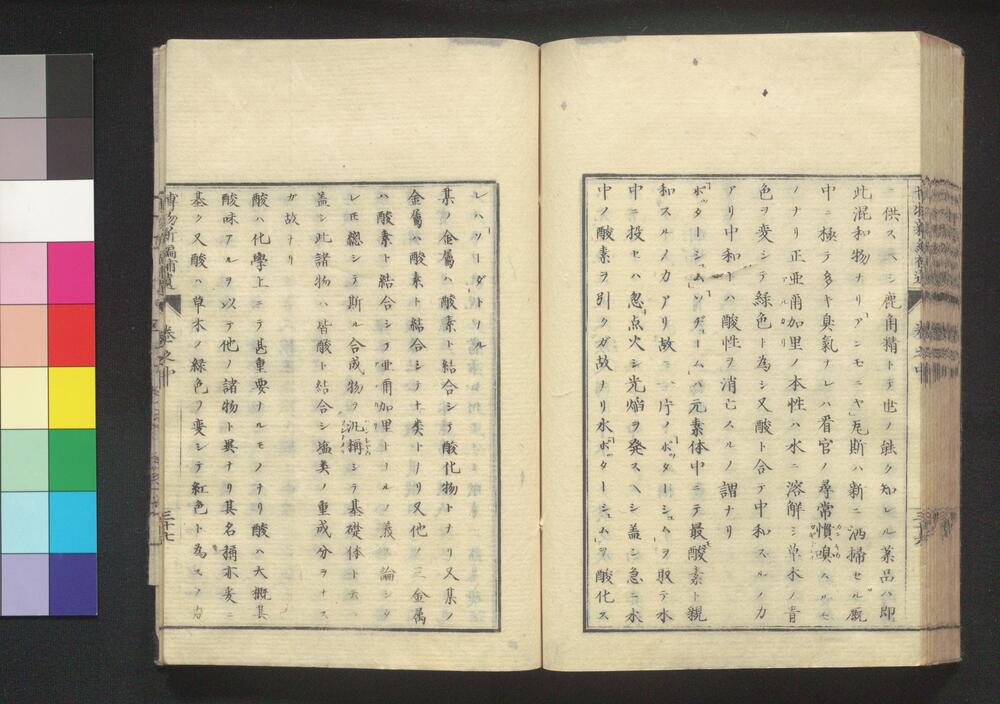 ニ供スヘシ鹿角精トテ世ノ能ク知レル薬品ハ即
此混和物ナリ「アンモニヤ」瓦斯ハ新ニ洒掃セル厩
中ニ極テ多キ臭氣ナレハ看官ノ尋常慣嗅スルモ
ノナリ正亜爾加里ノ本性ハ水ニ溶解シ草木ノ青
色ヲ変シテ緑色ト為シ又酸ト合テ中和スルノカ
アリ中和トハ酸性ヲ消亡スルノ謂ナリ
「ポッターシュム」「ソヂューム」ハ元素体中ニテ最酸素ト親
和スルノカアリ故ニ一片ノ「ポッターシュム」ヲ取テ水
中ニ投セハ忽点火シ光焔ヲ発スヘシ盖シ急ニ水
中ノ酸素ヲ引クガ故ナリ水「ポッターシュム」ヲ酸化ス
博物新編補遺 巻之中 三十七
レハ「ソーダ」トナル
某ノ金属ハ酸素ト結合シテ酸化物トナリ又某ノ
金属ハ酸素ト結合シテ土類トナリ又他ノ三金属
ハ酸素ト結合シテ亜爾加里トナルノ義ヲ論シタ
レモ總シテ斯ル合成物ヲ汎稱シテ基礎体ト云フ
盖シ此諸物ハ皆酸ト結合シ塩类ノ重成分ヲナス
ガ故ナリ
酸ハ化學上ニテ甚重要ナルモノナリ酸ハ大概其
酸味アルヲ以テ他ノ諸物ト異ナリ其名稱亦爰ニ
基ク又酸ハ草木ノ緑色ヲ変シテ紅色ト為スノ力